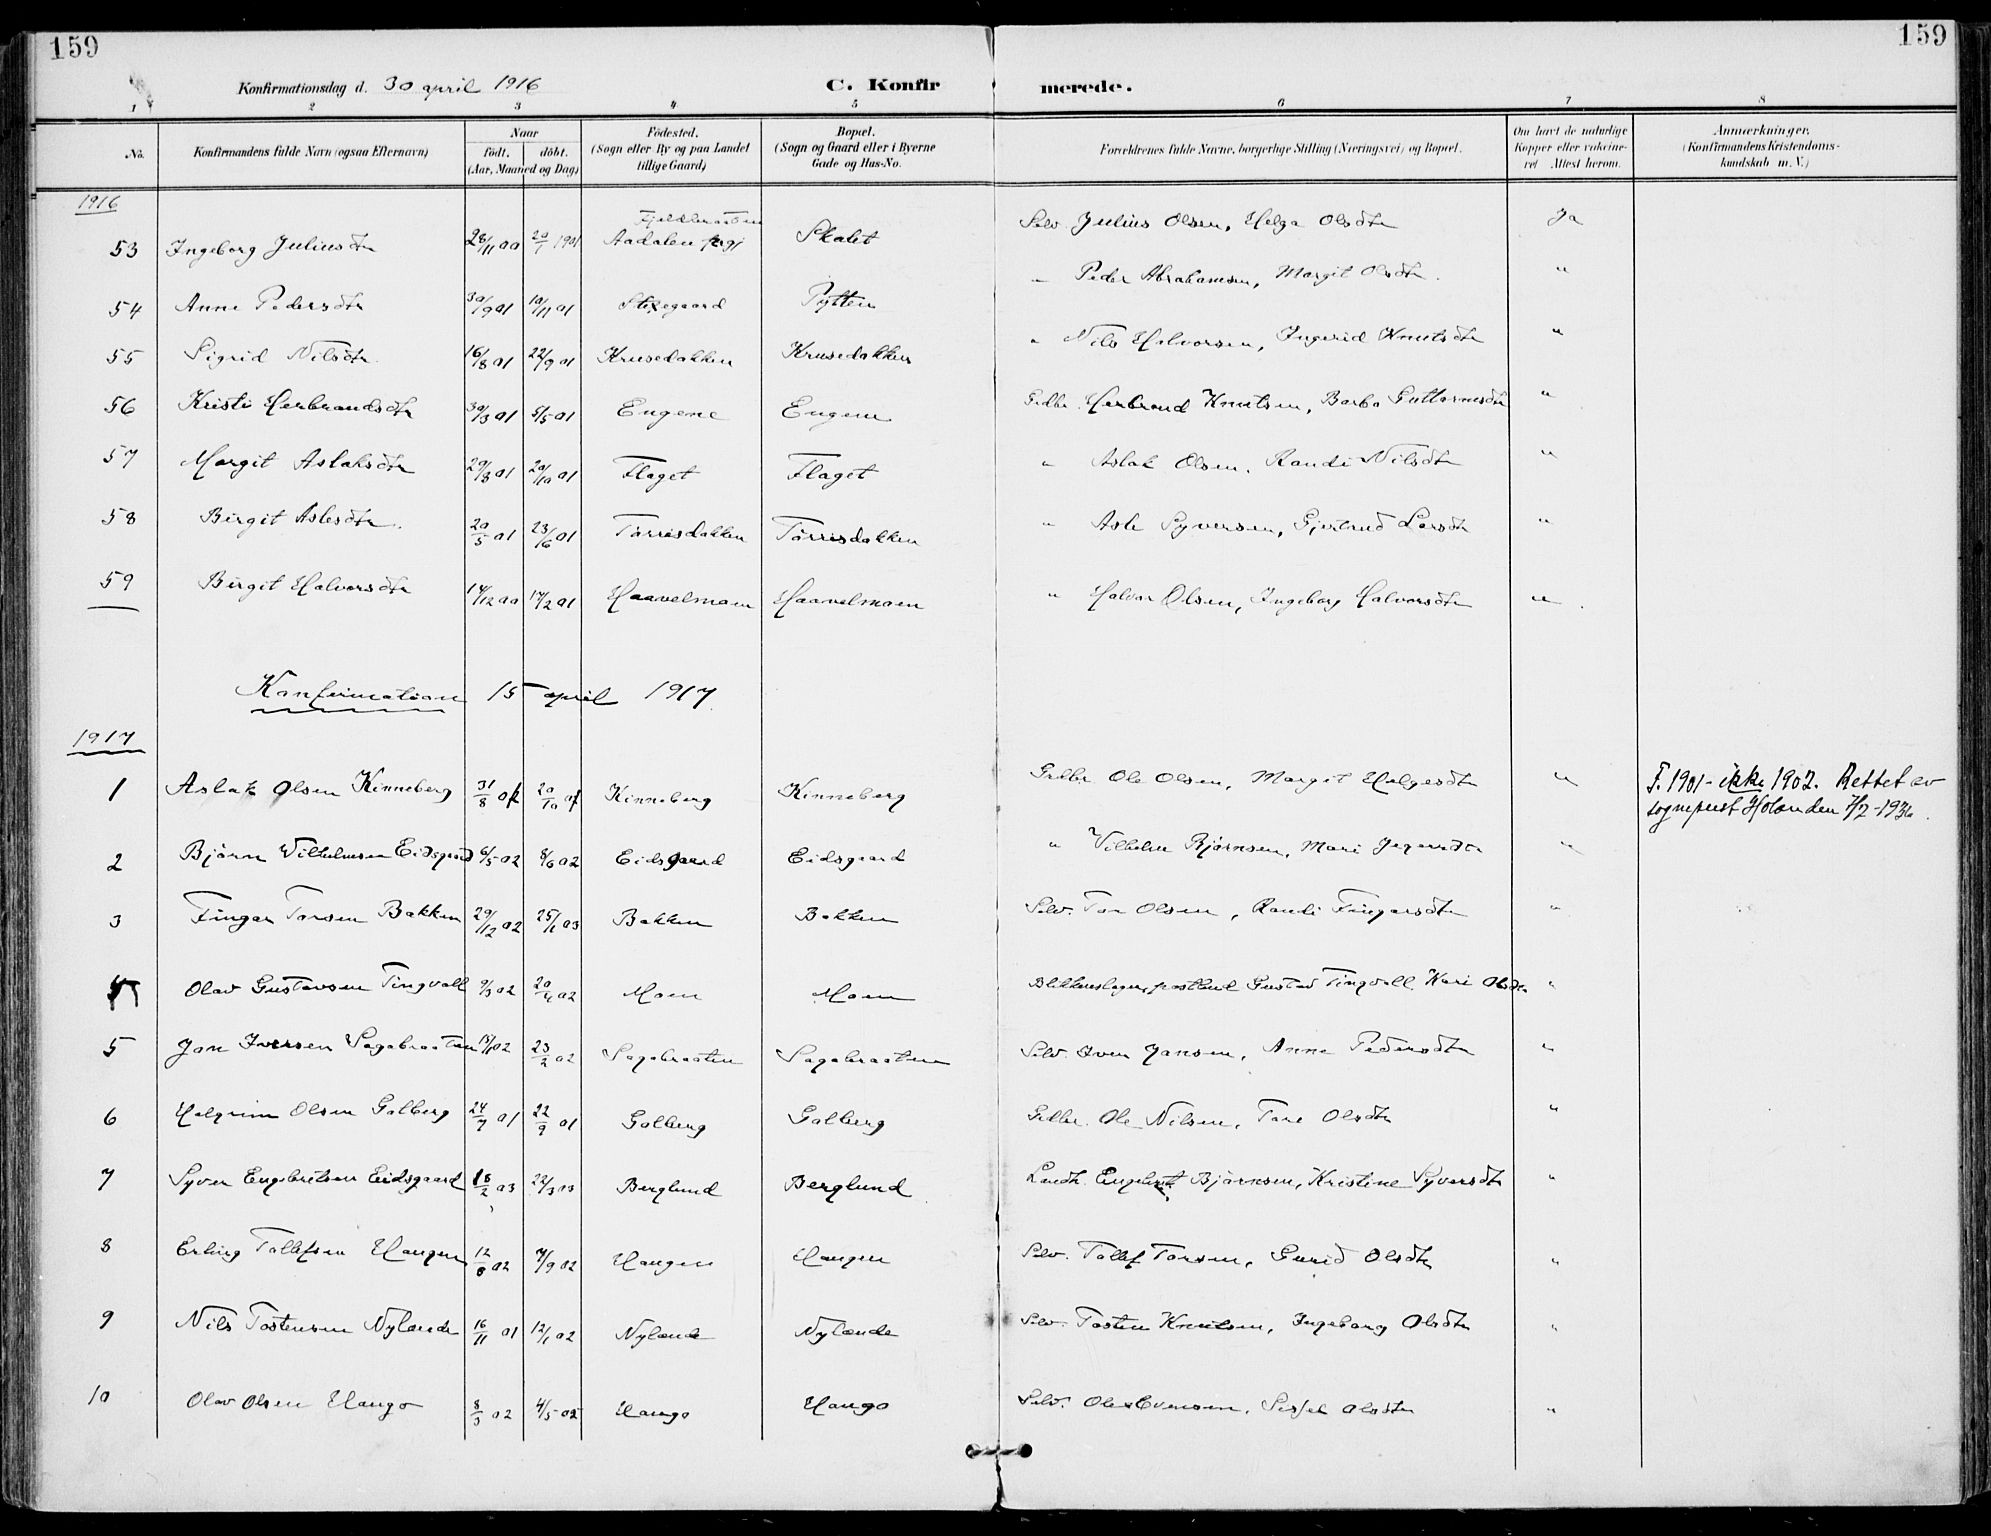 159
159
Konfirmationsdag d. 30 april 1916
C. Konfirmerede.
1 2 3 4 5 6 7 8
No.
Konfirmandens fulde Navn (ogsaa Efternavn)
Naar
födt. döbt.
(Aar, Maaned og Dag)
Födested.
(Sogn eller By og paa Landet
tillige Gaard)
Bopæl.
(Sogn og Gaard eller i Byerne
Gade og Hus-No.
Forældrenes fulde Navne, borgerlige Stilling (Næringsvei) og Bopæl.
Om havt de naturlige
Kopper eller vakcine-
ret Attest herom.
Anmærkninger.
(Konfirmandens Kristendoms-
kundskab m. V.)
1916
53 Ingeborg Juliusdtr 28/11 00 20/1 1901 Aadalen Skalet Selv. Julius Olsen, Helga Olsdtr Ja
54 Anne Pedersdtr 30/9 01 10/11 01 Pytten " Peder Abrahamsen, Margit Olsdtr. "
55 Sigrid Nilsdtr. 16/8 01 22/9 01 Krusedokken Krusedokken " Nils Halvorsen, Ingerid Knutsdtr "
56 Kristi Herbrandsdtr 30/3 01 5/5 01 Eugene Eugene Gdbr. Herbrand Knutsen, Barbo Guttormsdtr "
57 Margit Aslaksdtr 29/8 01 20/10 01 Flaget Flaget " Aslak Olsen, Randi Nilsdtr "
58 Birgit Aslesdtr. 20/5 01 23/6 01 Törrisdokken Törrisdokken " Asle Syversen, Gjertrud Larsdtr "
59 Birgit Halvorsdtr 14/12 00 17/2 01 Haavelmoen Haavelmoen " Halvor Olsen, Ingeborg Halvorsdtr "
Konfirmation 15 april 1917.
1917
1 Aslak Olsen Kinneberg 31/8 01 20/10 01 Kinneberg Kinneberg Gdbr. Ole Olsen, Margit Helgesdtr " F. 1901 - ikke 1902. Rettet av
sogneprest Holanden 7/2-1936.
2 Björn Wilhelmsen Eidsgaard 6/5 02 8/6 02 Eidsgaard Eidsgaard " Vilhelm Björnsen, Mari "
3 Fingar Torsen Bakken 29/12 02 25/1 03 Bakken Bakken Selv. Tor Olsen, Randi Fingarsdtr "
4 Olav Gustavsen Tingvoll 9/3 02 20/4 02 Moen Moen Blikkenslager, postbud Gustav Tingvoll, Kari Olsdtr "
5 Jon Iversen Sagabraaten 15/1 02 23/2 02 Sagabraaten Sagabraaten Selv. Iver Jonsen, Anne Pedersdtr "
6 Halgrim Olsen Golberg 24/7 01 22/9 01 Golberg Golberg Gdbr. Ole Nilsen, Tore Olsdtr "
7 Syver Engebretsen Eidsgaard 18/2 03 22/3 03 Berglund Berglund Landh. Engebret Björnsen, Kristine Syversdtr "
8 Erling Tollefsen Haugen 12/8 02 7/9 02 Haugen Haugen Selv. Tollef Torsen, Gurid Olsdtr "
9 Nils Tostensen Nylende 16/11 01 12/1 02 Nylende Nylende Selv. Tosten Knutsen, Ingeborg Olsdtr "
10 Olav Olsen Haugo 8/3 02 4/5 02 Haugo Haugo Selv. Ole Evensen, Sissel Olsdtr "